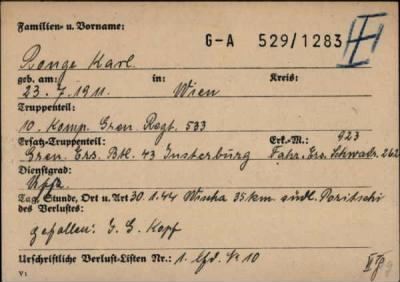 Familien- u. Vorname:
G-A 529/1283
Ronge Karl
geb. am: in: Kreis:
23. 7. 1911. Wien
Truppenteil:
10. Komp. Gren. Regt. 533
Ersatz-Truppenteil: Erk.-M.: 923
Gren. Ers. Btl. 43 Insterburg Fahr. Ers. Schwadr. 262
Dienstgrad:
Tag, Stunde, Ort u. Art 30. 1. 44 Wischa 35 km südl. Poritschi
des Verlustes:
gefallen: J. G. Kopf
Urschriftliche Verlust-Listen Nr.: 1. lfd. N 10
V 1